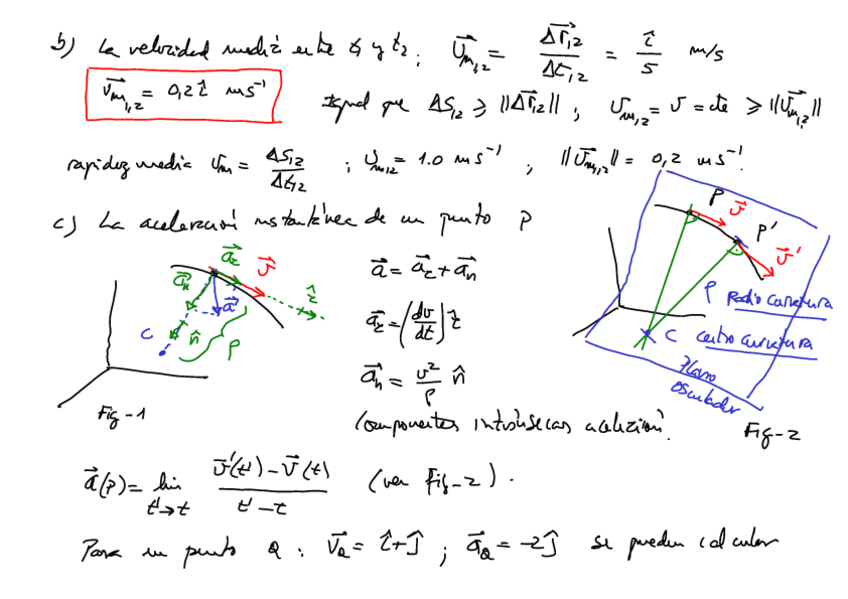 b) La velocidad media entre t₁ y t₂ ; v⃗ₘ₁,₂ = Δr⃗₁₂ / Δt₁₂ = î / 5 m/s
v⃗ₘ₁,₂ = 0,2 î m s⁻¹
Igual que ΔS₁₂ ≥ ||Δr⃗₁₂|| ; vₘ₁,₂ = v = cte ≥ ||v⃗ₘ₁,₂||
rapidez media vₘ = ΔS₁₂ / Δt₁₂ ; vₘ₁₂ = 1.0 m s⁻¹ ; ||v⃗ₘ₁,₂|| = 0,2 m s⁻¹.
c) La aceleración instantánea de un punto P
a⃗τ v⃗
a⃗n a⃗ τ̂
C n̂ ρ
Fig-1
a⃗ = a⃗τ + a⃗n
a⃗τ = (dv/dt) τ̂
a⃗n = v²/ρ n̂
Componentes intrínsecas aceleración.
P v⃗
P' v⃗'
ρ Radio curvatura
C centro curvatura
Plano
osculador
Fig-2
a⃗(P) = lim t'→t (v⃗'(t') - v⃗(t)) / (t' - t) (ver Fig-2).
Para un punto Q : v⃗Q = î + ĵ ; a⃗Q = -2ĵ se pueden calcular